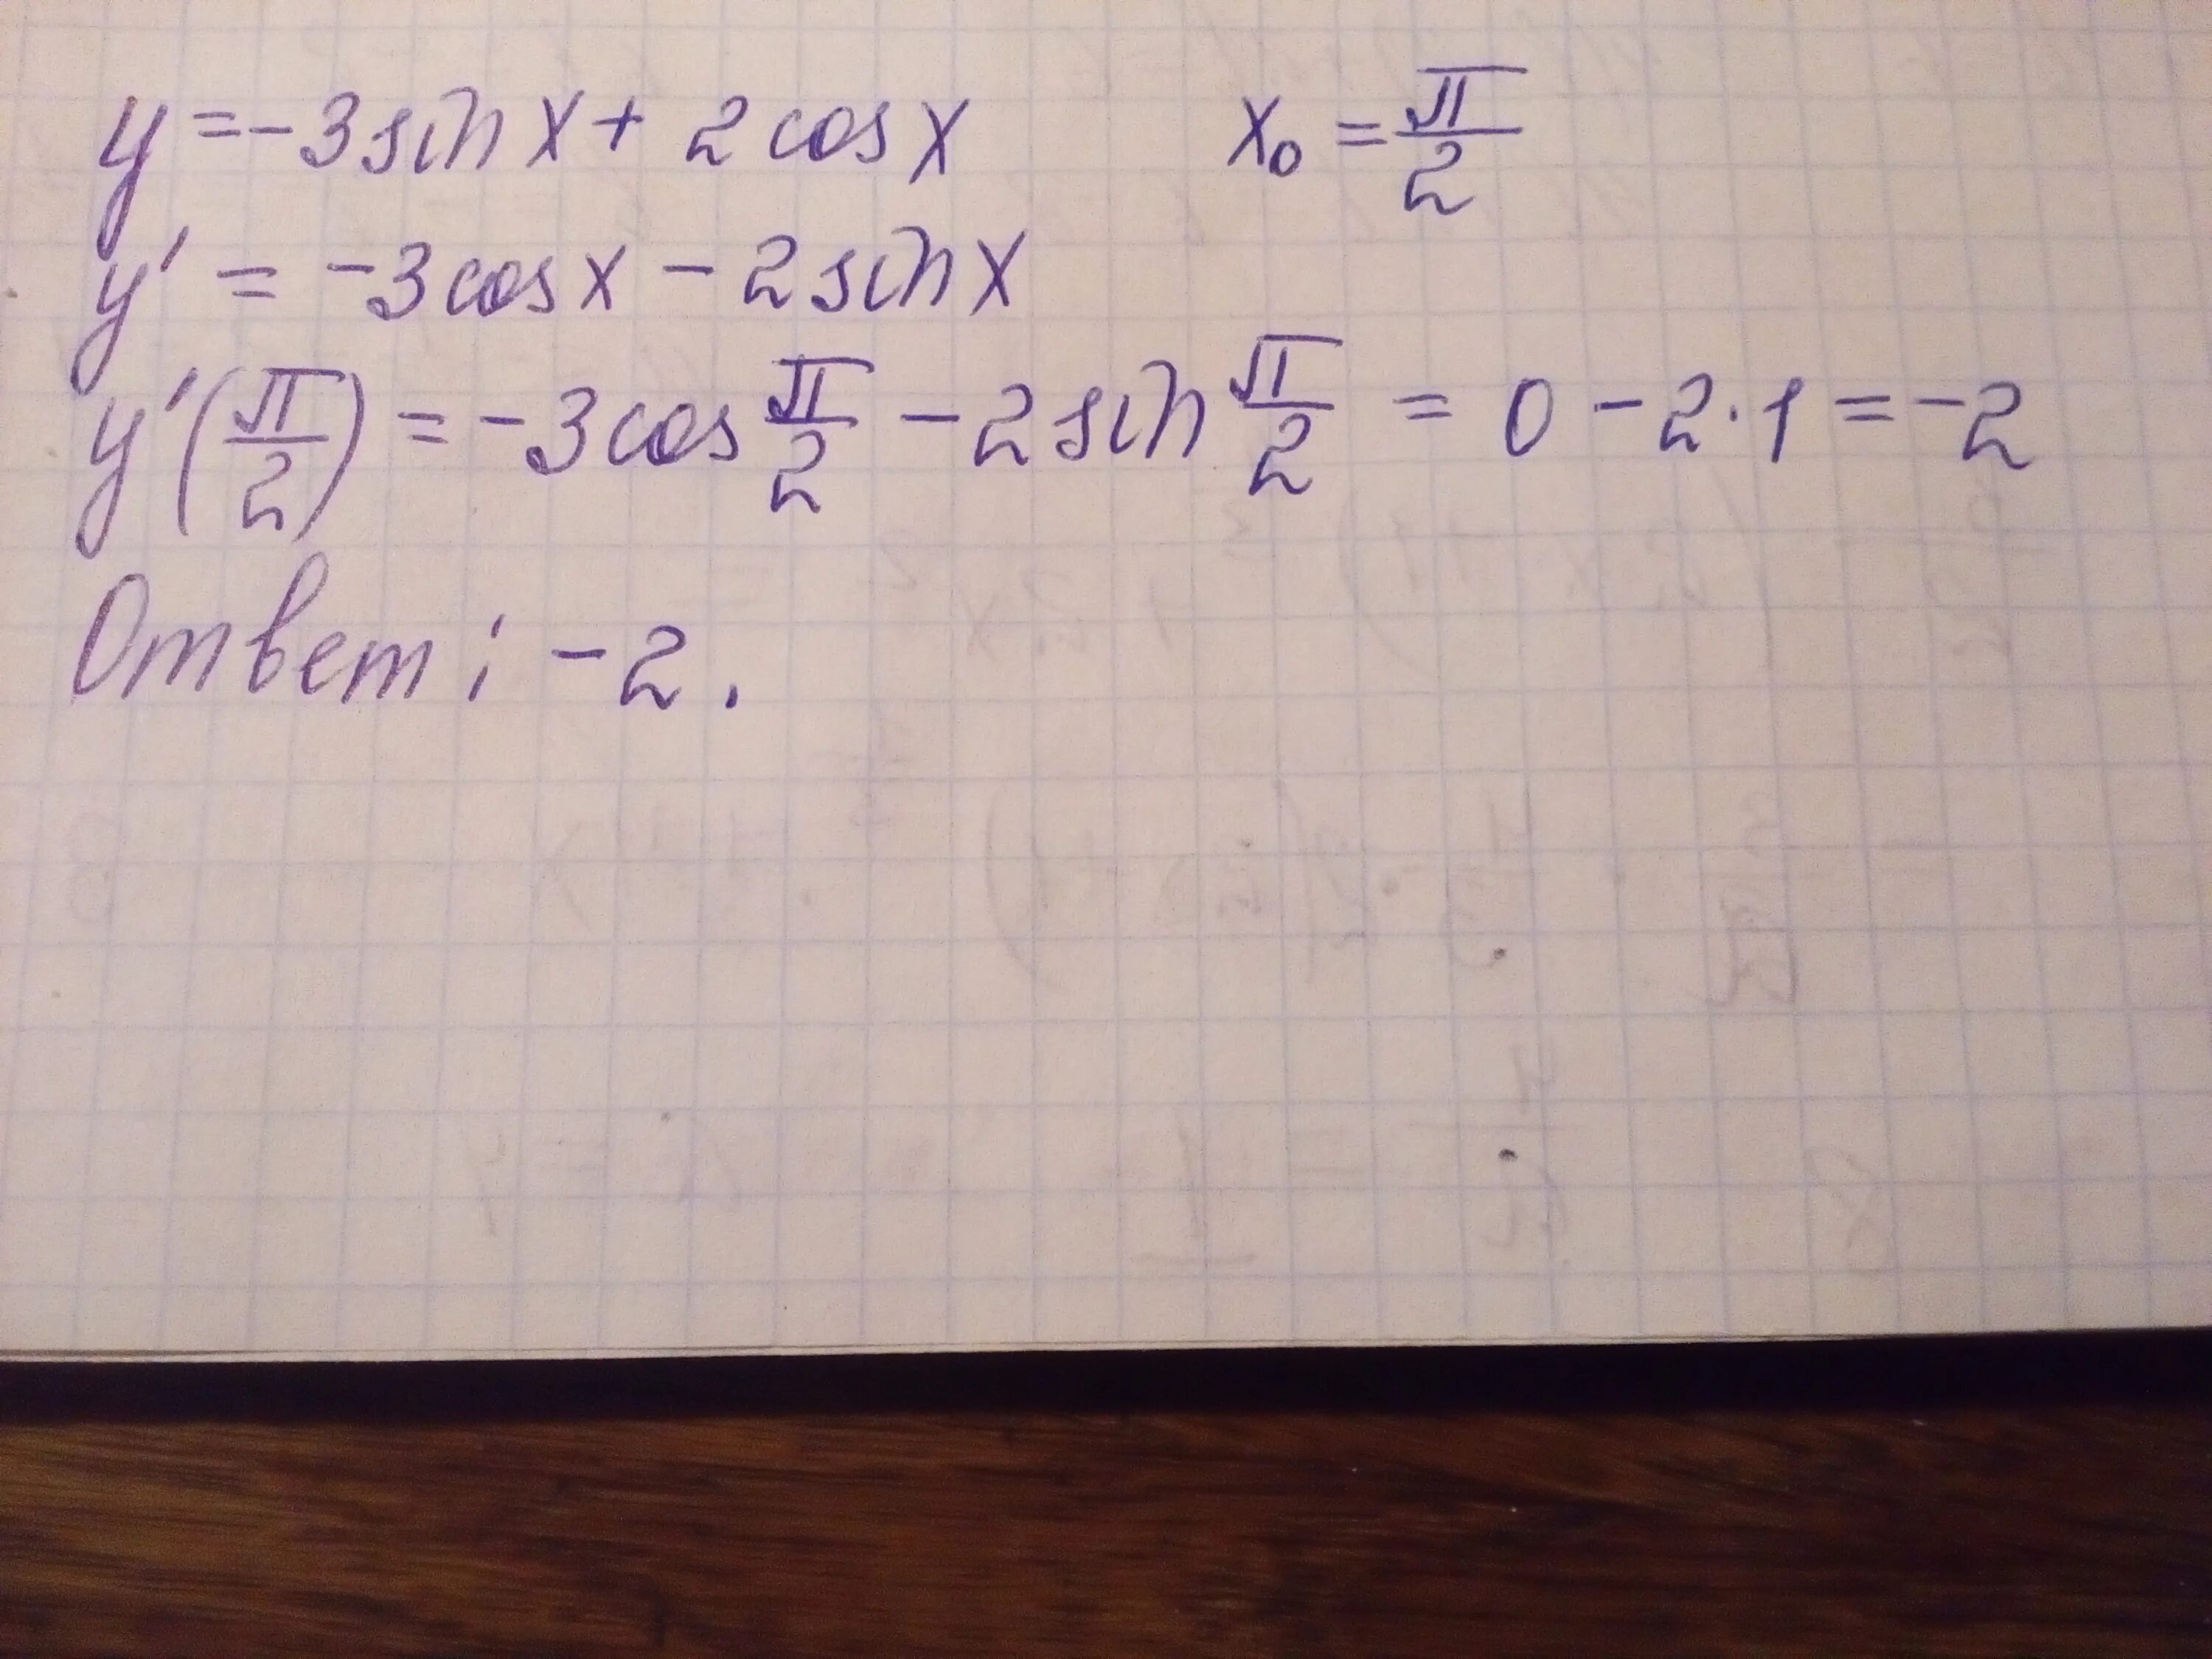 y = -3 sin x + 2 cos x x₀ = π/2
y' = -3 cos x - 2 sin x
y'(π/2) = -3 cos π/2 - 2 sin π/2 = 0 - 2·1 = -2
Ответ: -2.